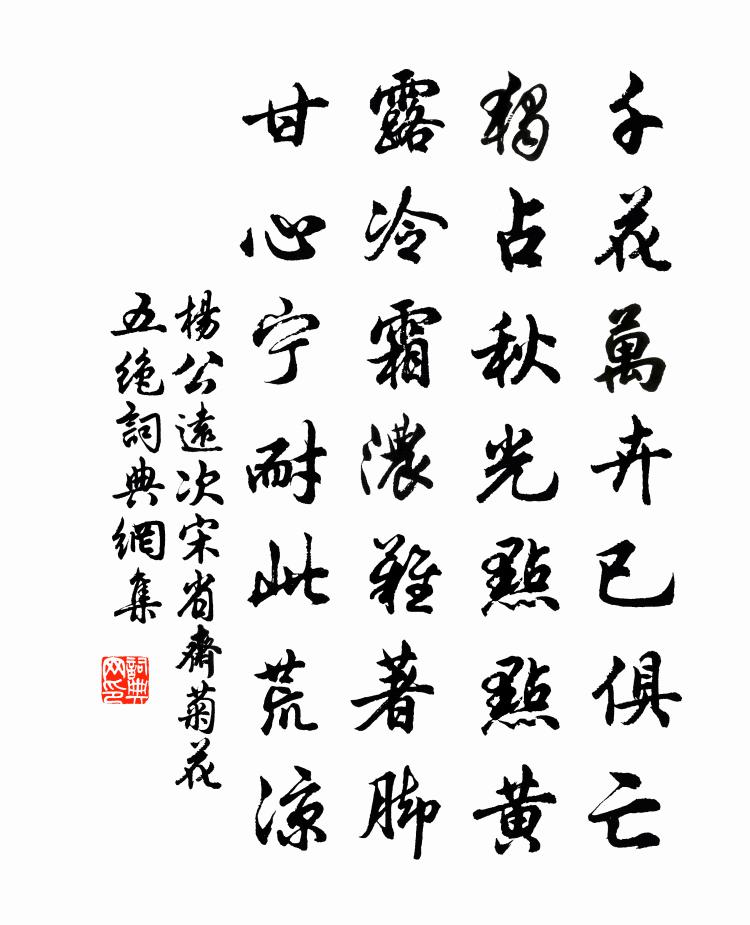 千花萬卉已俱亡
獨占秋光點點黃
露冷霜濃難著脚
甘心宁耐此荒凉
楊公遠次宋省齋菊花
五绝詞典網集
詞典
网印